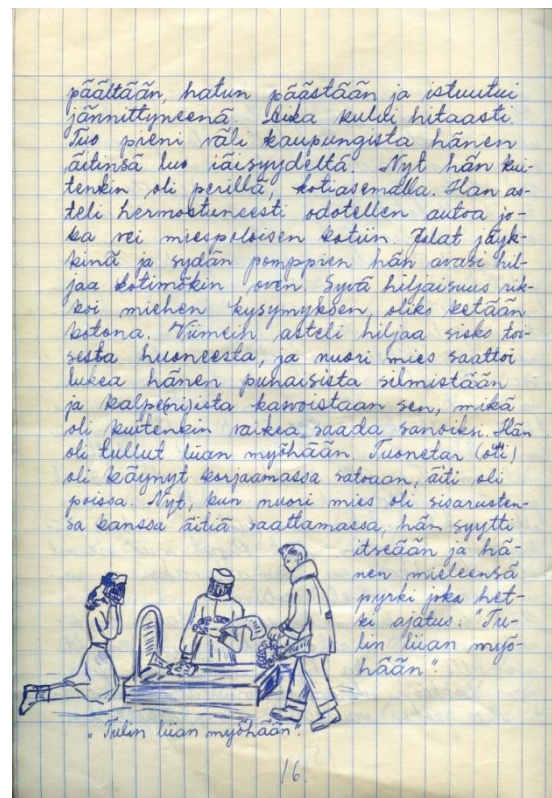 päältään, hatun päästään ja istuutui
jännittyneenä. Aika kului hitaasti.
Tuo pieni väli kaupungista hänen
äitinsä luo iäisyydeltä. Nyt hän kui-
tenkin oli perillä, kotiasemalla. Hän as-
teli hermostuneesti odotellen autoa jo-
ka vei miespoloisen kotiin. Jalat jäyk-
kinä ja sydän pomppien hän avasi hil-
jaa kotimökin oven. Syvä hiljaisuus rik-
koi miehen kysymyksen, oliko ketään
kotona. Viimein asteli hiljaa sisko toi-
sesta huoneesta, ja nuori mies saattoi
lukea hänen punaisista silmistään
ja kalpe(ni)ista kasvoistaan sen, mikä
oli kuitenkin vaikea saada sanoiksi. Hän
oli tullut liian myöhään. Tuonetar (otti)
oli käynyt korjaamassa satoaan, äiti oli
poissa. Nyt, kun nuori mies oli sisarusten-
sa kanssa äitiä saattamassa, hän syytti
itseään ja hä-
nen mieleensä
pyrki joka het-
ki ajatus: "Tu-
lin liian myö-
hään".
"Tulin liian myöhään".
16.